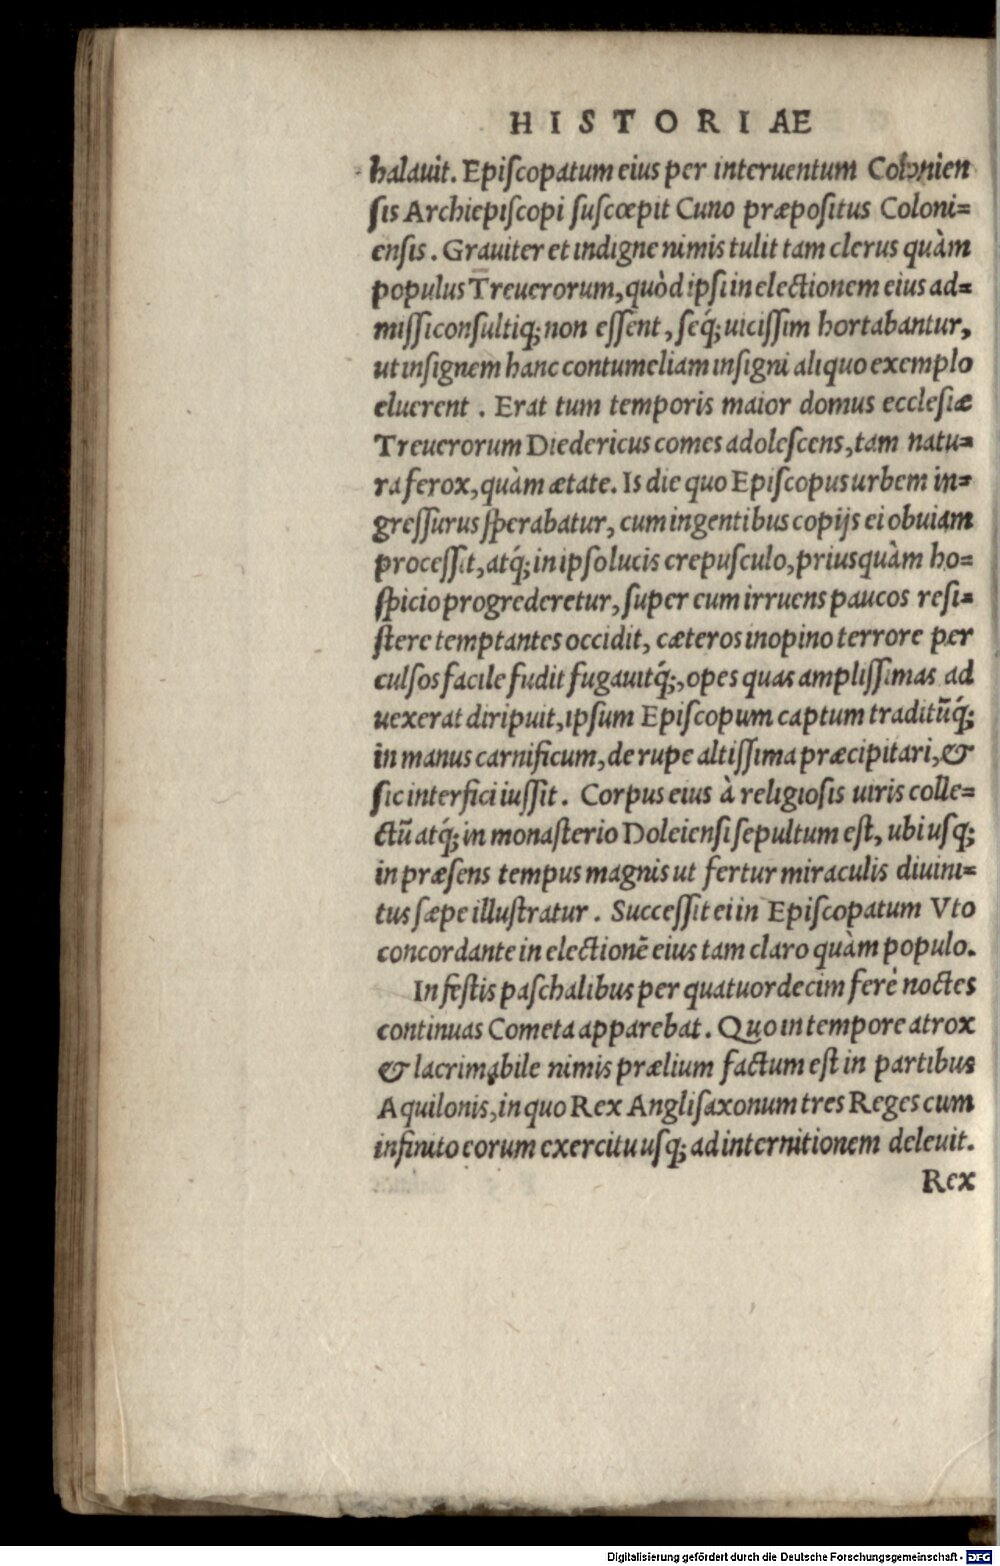 HISTORIAE
halauit. Epiſcopatum eius per interuentum Colonien
ſis Archiepiſcopi ſuſcœpit Cuno præpoſitus Coloni=
enſis. Grauiter et indigne nimis tulit tam clerus quàm
populus Treuerorum, quòd ipſi in electionem eius ad=
miſſi conſultiq; non eſſent, ſeq́; uiciſſim hortabantur,
ut inſignem hanc contumeliam inſigni aliquo exemplo
eluerent. Erat tum temporis maior domus eccleſiæ
Treuerorum Diedericus comes adoleſcens, tam natu=
ra ferox, quàm ætate. Is die quo Epiſcopus urbem in=
greſſurus ſperabatur, cum ingentibus copijs ei obuiam
proceſſit, atq́; in ipſo lucis crepuſculo, priusquàm ho=
ſpicio progrederetur, ſuper eum irruens paucos reſi=
ſtere temptantes occidit, cæteros inopino terrore per
culſos facile fudit fugauitq́;, opes quas ampliſſimas ad
uexerat diripuit, ipſum Epiſcopum captum traditũq́;
in manus carnificum, de rupe altiſſima præcipitari, &
ſic interfici iuſſit. Corpus eius à religioſis uiris colle=
ctũ atq́; in monaſterio Doleienſi ſepultum eſt, ubi uſq;
in præſens tempus magnis ut fertur miraculis diuini=
tus ſæpe illuſtratur. Succeſſit ei in Epiſcopatum Vto
concordante in electionẽ eius tam claro quàm populo.
In feſtis paſchalibus per quatuordecim ferè noctes
continuas Cometa apparebat. Quo in tempore atrox
& lacrimabile nimis prælium factum eſt in partibus
Aquilonis, in quo Rex Angliſaxonum tres Reges cum
infinito eorum exercitu uſq; ad internitionem deleuit.
Rex
Digitalisierung gefördert durch die Deutsche Forschungsgemeinschaft - DFG